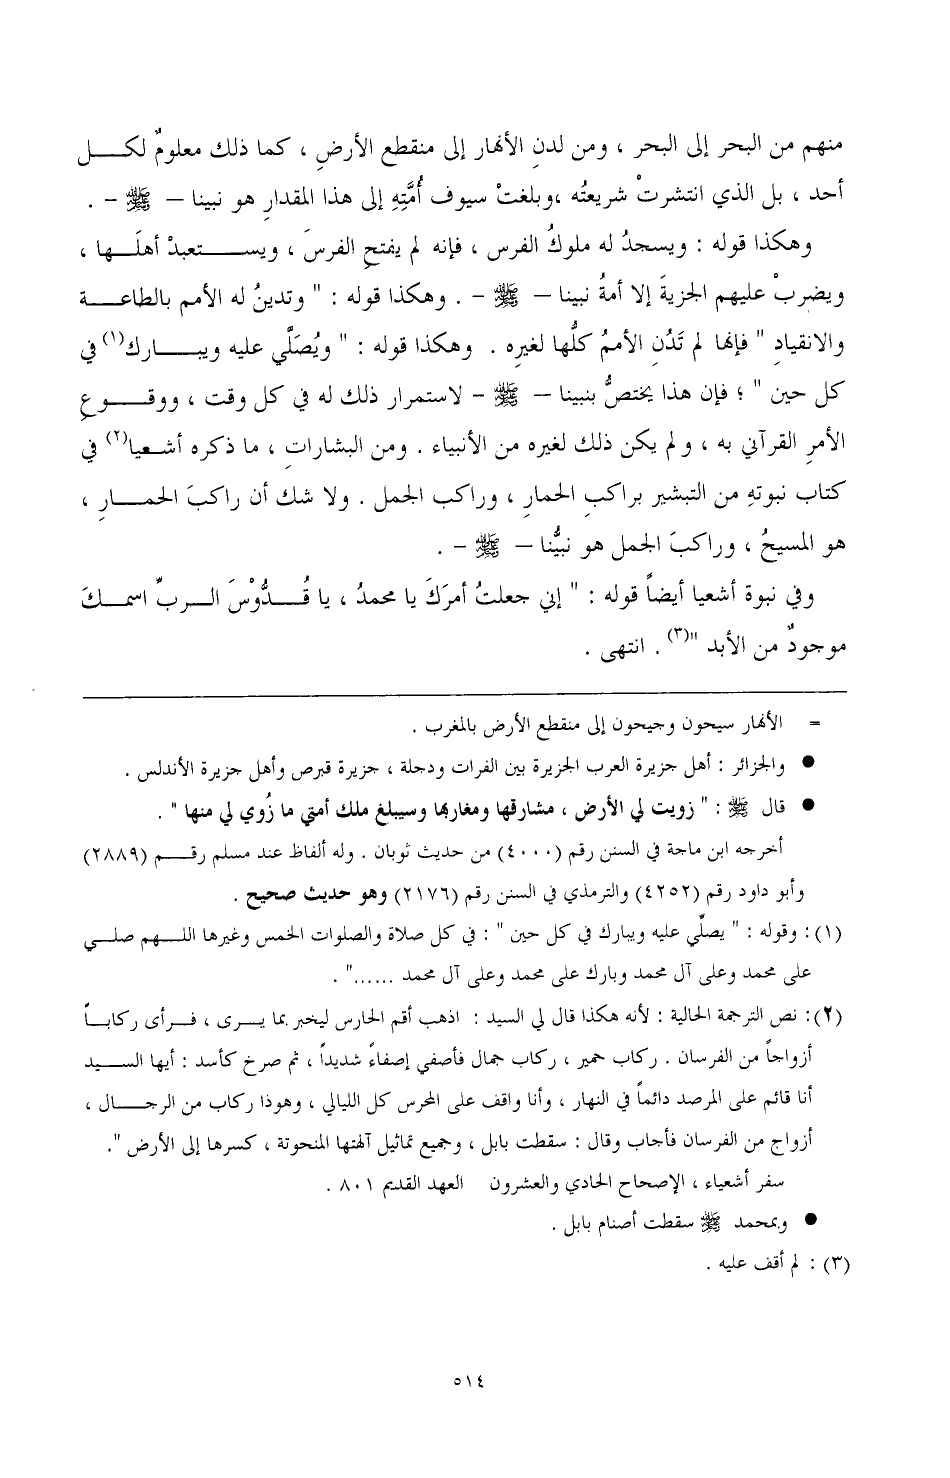 منهم من البحر إلى البحر ، ومن لدنِ الأنهار إلى منقطع الأرضِ ، كما ذلك معلومٌ لكــــل
أحد ، بل الذي انتشرتْ شريعتُه ،وبلغتْ سيوف أُمَّتِهِ إلى هذا المقدارِ هو نبينا – ﷺ – .
وهكذا قوله : ويسجدُ له ملوكُ الفرس ، فإنه لم يفتحِ الفرسَ ، ويســـــتعبدْ أهلَـــها ،
ويضربْ عليهم الجزيةَ إلا أمةُ نبينا – ﷺ – . وهكذا قوله : " وتدينُ له الأمم بالطاعـــة
والانقيادِ " فإنها لم تَدُنِ الأممُ كلُّها لغيرِه . وهكذا قوله : " ويُصَلَّي عليه ويبــــارك(١) في
كل حين " ؛ فإن هذا يختصُّ بنبينا – ﷺ – لاستمرار ذلك له في كل وقت ، ووقـــوعِ
الأمرِ القرآني به ، و لم يكن ذلك لغيره من الأنبياء . ومن البشاراتِ ، ما ذكره أشـعيا(٢) في
كتاب نبوتهِ من التبشير براكبِ الحمارِ ، وراكب الجمل . ولا شك أن راكبَ الحمـــارِ ،
هو المسيحُ ، وراكبَ الجمل هو نبيُّنا – ﷺ – .
وفي نبوة أشعيا أيضاً قوله : " إني جعلتُ أمرَكَ يا محمدُ ، يا قُـــدُّوْسَ الـــربِّ اسمـــكَ
موجودٌ من الأبد "(٣) . انتهى .
= الأنهار سيحون وجيحون إلى منقطع الأرض بالمغرب .
● والجزائر : أهل جزيرة العرب الجزيرة بين الفرات ودجلة ، جزيرة قبرص وأهل جزيرة الأندلس .
● قال ﷺ : " زويت لي الأرض ، مشارقها ومغاربها وسيبلغ ملك أمتي ما زُوي لي منها " .
أخرجه ابن ماجة في السنن رقم (٤٠٠٠) من حديث ثوبان . وله ألفاظ عند مسلم رقـــم (٢٨٨٩)
وأبو داود رقم (٤٢٥٢) والترمذي في السنن رقم (٢١٧٦) وهو حديث صحيح .
(١): وقوله : " يصلّي عليه ويبارك في كل حين " : في كل صلاة والصلوات الخمس وغيرها اللـــهم صلـــي
على محمد وعلى آل محمد وبارك على محمد وعلى آل محمد ......" .
(٢): نص الترجمة الحالية : لأنه هكذا قال لي السيد : اذهب أقم الحارس ليخبر بما يـــرى ، فـــرأى ركابـــاً
أزواجاً من الفرسان . ركاب حمير ، ركاب جمال فأصفي إصفاءً شديداً ، ثم صرخ كأسد : أيها الســـيد
أنا قائم على المرصد دائماً في النهار ، وأنا واقف على المحرس كل الليالي ، وهوذا ركاب من الرجـــال ،
أزواج من الفرسان فأجاب وقال : سقطت بابل ، وجميع تماثيل آلهتها المنحوتة ، كسرها إلى الأرض ".
سفر أشعياء ، الإصحاح الحادي والعشرون العهد القديم ٨٠١ .
● وبمحمد ﷺ سقطت أصنام بابل .
(٣) : لم أقف عليه .
٥١٤